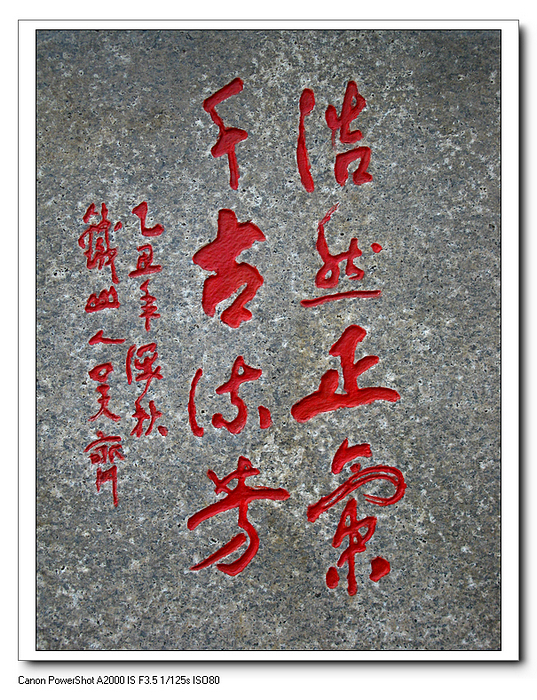 浩然正氣
千古流芳
乙丑年深秋
鐵山人吴
Canon PowerShot A2000 IS F3.5 1/125s ISO80